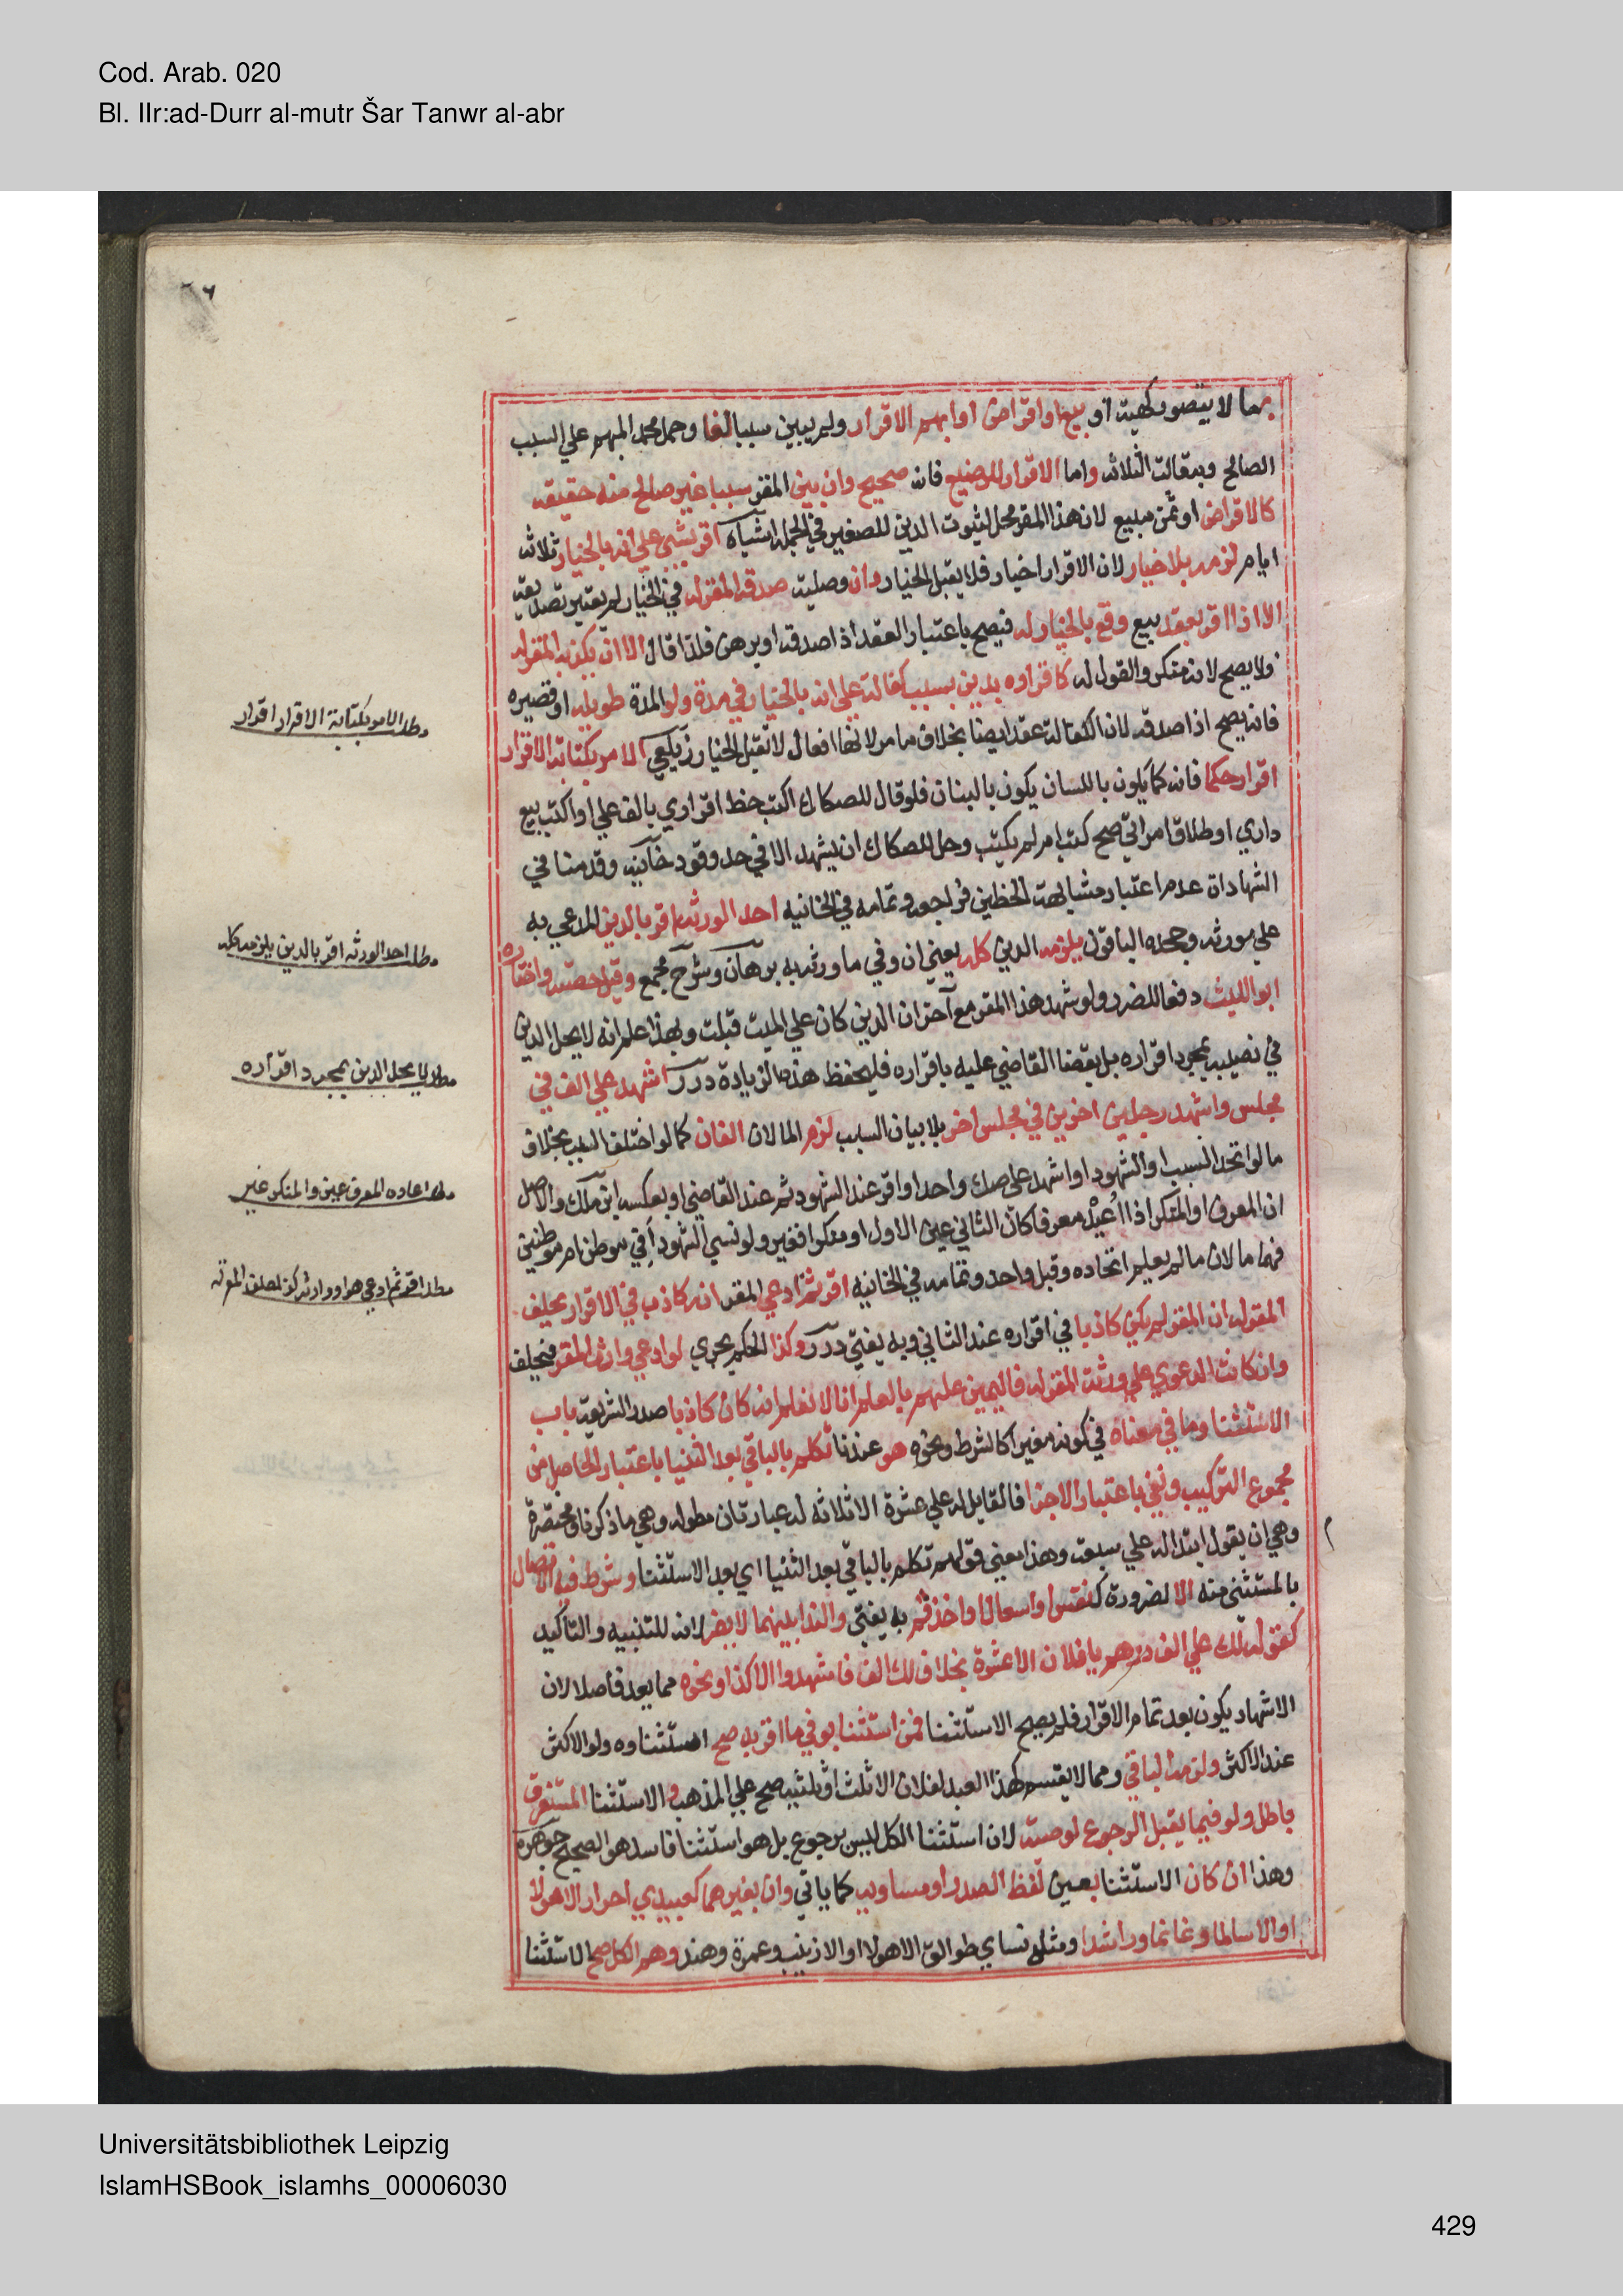 Cod. Arab. 020
Bl. IIr:ad-Durr al-mutr Šar Tanwr al-abr
بما لا يتصور كهبة او بيع او اقراض او ابهم الاقرار ولم يبين سببا لغا وحمل محمد المبهم علي السبب
الصالح وبه قالت الثلاثه واما الاقرار للرضيع فانه صحيح وان بين المقر سببا غير صالح منه حقيقه
كالاقراض او ثمن مبيع لان هذا المقر محل لثبوت الدين للصغير في الجمله اشباه اقر بشي علي انه بالخيار ثلاثه
ايام لزمه بلا خيار لان الاقرار اخبار فلا يقبل الخيار وان وصليه صدقه المقر له في الخيار لم يعتبر تصديقه
الا اذا اقر بعقد بيع وقع بالخيار له فيصح باعتبار العقد اذا صدقه او برهن فلذا قال الا ان يكذبه المقر له
فلا يصح لانه منكر والقول له كاقراره بدين بسبب كفالة علي انه بالخيار في مدة ولو المدة طويله او قصيره
فانه يصح اذا صدقه لان الكفالة عقد ايضا بخلاف ما مر لانها افعال لا تقبل الخيار زيلعي الامر بكتابة الاقرار
اقرار حكما فانه كما يكون باللسان يكون بالبنان فلو قال للصكاك اكتب خط اقراري بالف علي او اكتب بيع
داري او طلاق امراتي صح كتب ام لم يكتب وحل للصكاك ان يشهد الا في حد وقود خانيه وقدمنا في
الشهادات عدم اعتبار مشابهة الخطين فراجعه وتمامه في الخانيه احد الورثه اقر بالدين المدعي به
علي مورثه وجحده الباقون يلزمه الدين كله يعني ان وفي ما ورثه به برهان وشرح مجمع وقيل حصته واختاره
ابو الليث دفعا للضرر ولو شهد هذا المقر مع آخر ان الدين كان علي الميت قبلت وبهذا علم انه لا يحل الدين
في نصيبه بمجرد اقراره بل بقضا القاضي عليه باقراره فليحفظ هذه الزيادة درر اشهد علي الف في
مجلس واشهد رجلين اخرين في مجلس اخر بلا بيان السبب لزم المالان الفان كما لو اختلف السبب بخلاف
ما لو اتحد السبب او الشهود او اشهد علي صك واحد او اقر عند الشهود ثم عند القاضي او بعكسه ابن ملك والاصل
ان المعرف او المنكر اذا اعيد معرفا كان الثاني عين الاول او منكرا فغيره ولو نسي الشهود افي موطن ام موطنين
فهما مالان ما لم يعلم اتحاده وقيل واحد وتمامه في الخانيه اقر ثم ادعي المقر انه كاذب في الاقرار يحلف
المقر له ان المقر لم يكن كاذبا في اقراره عند الثاني وبه يفتي درر وكذا الحكم يجري لو ادعي وارث المقر فيحلف
وان كانت الدعوي علي ورثة المقر له فاليمين عليهم بالعلم انا لا نعلم انه كان كاذبا صدر الشريعه باب
الاستثنا وما في معناه في كونه مغيرا كالشرط ونحوه هو عندنا تكلم بالباقي بعد الثنيا باعتبار الحاصل من
مجموع التركيب ونفي باعتبار الاجزا فالقايل له علي عشرة الا ثلاثه له عبارتان مطوله وهي ما ذكرنا ومختصرة
وهي ان يقول ابتدا له علي سبعه وهذا معني قولهم تكلم بالباقي بعد الثنيا اي بعد الاستثنا وشرط فيه الاتصال
بالمستثني منه الا لضرورة كنفس او سعال او اخذ فم به يفتي والندا بينهما لا يضر لانه للتنبيه والتاكيد
كقوله لك علي الف درهم يا فلان الا عشرة بخلاف لك الف فاشهدوا الا كذا ونحوه مما يعد فاصلا لان
الاشهاد يكون بعد تمام الاقرار فلم يصح الاستثنا فمن استثنا بعض ما اقر به صح استثناوه ولو الاكثر
عند الاكثر ولزمه الباقي ومما لا يقسم كهذا العبد لفلان الا ثلثه او ثلثيه صح علي المذهب والاستثنا المستغرق
باطل ولو فيما يقبل الرجوع لوصية لان استثنا الكل ليس برجوع بل هو استثنا فاسد هو الصحيح جوهره
وهذا ان كان الاستثنا بعين لفظ الصدر او مساويه كما ياتي وان بغيرهما كعبيدي احرار الا هولا
او الا سالما وغانما وراشدا ومثله نساي طوالق الا هولا او الا زينب وعمرة وهند وهم الكل صح الاستثنا
مطلب الامر بكتابة الاقرار اقرار
مطلب احد الورثه اقر بالدين يلزمه كله
مطلب لا يحل الدين بمجرد اقراره
مطلب اعاده المعرف عين والمنكر غير
Universitätsbibliothek Leipzig
IslamHSBook_islamhs_00006030
429